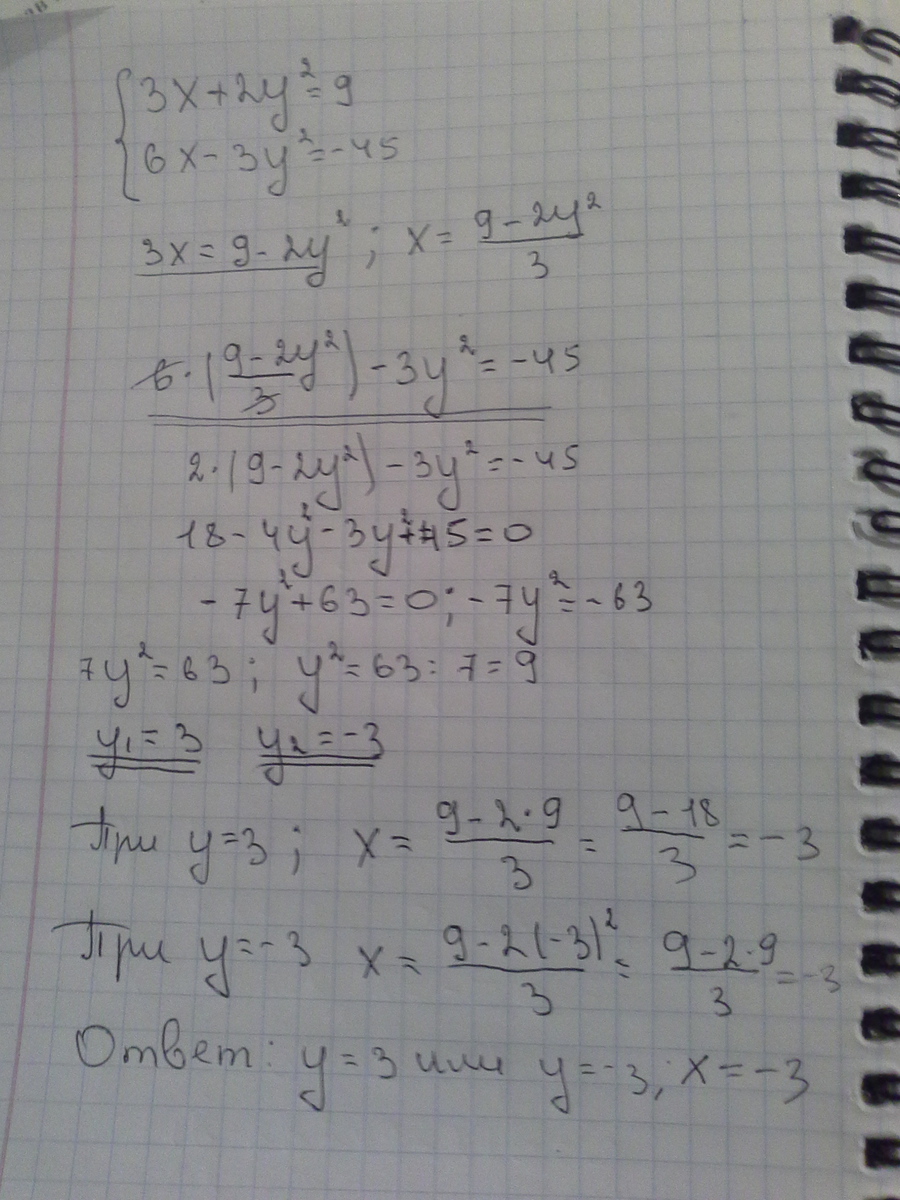 3x+2y²=9
6x-3y²=-45
3x=9-2y²; x=(9-2y²)/3
6·((9-2y²)/3)-3y²=-45
2·(9-2y²)-3y²=-45
18-4y²-3y²+45=0
-7y²+63=0; -7y²=-63
7y²=63; y²=63:7=9
y₁=3 y₂=-3
При y=3; x=(9-2·9)/3=(9-18)/3=-3
При y=-3 x=(9-2(-3)²)/3=(9-2·9)/3=-3
Ответ: y=3 или y=-3; x=-3